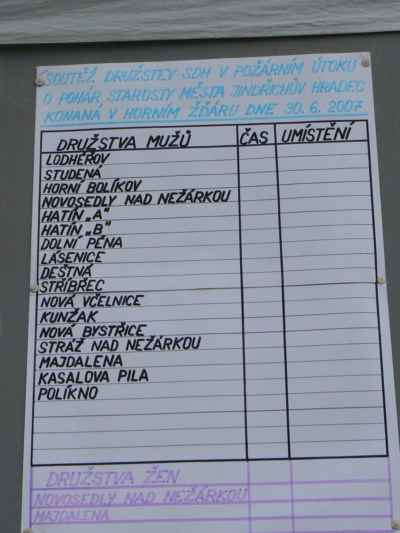 SOUTĚŽ DRUŽSTEV SDH V POŽÁRNÍM ÚTOKU
O POHÁR STAROSTY MĚSTA JINDŘICHŮV HRADEC
KONANÁ V HORNÍM ŽĎÁRU DNE 30.6.2007
DRUŽSTVA MUŽŮ ČAS UMÍSTĚNÍ
LODHÉŘOV
STUDENÁ
HORNÍ BOLÍKOV
NOVOSEDLY NAD NEŽÁRKOU
HATÍN „A"
HATÍN „B"
DOLNÍ PĚNA
LÁSENICE
DEŠTNÁ
STŘÍBŘEC
NOVÁ VČELNICE
KUNŽAK
NOVÁ BYSTŘICE
STRÁŽ NAD NEŽÁRKOU
MAJDALENA
KASALOVA PILA
POLÍKNO
DRUŽSTVA ŽEN
NOVOSEDLY NAD NEŽÁRKOU
MAJDALENA